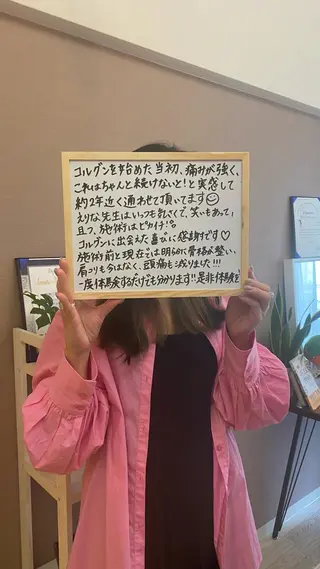 コルグンを始めた当初、痛みが強く、
これはちゃんと続けないと!と実感して
約2年近く通わせて頂いてます☺
えりな先生はいつも気さくで、笑いもあって、
且つ、施術はピカイチ!!。
コルグンに出会えた喜びに感謝です♡
施術前と現在では明らかに骨格が整い、
肩こりも今はなく、頭痛も減りました!!!
一度体験するだけでも分かります!!是非体験を